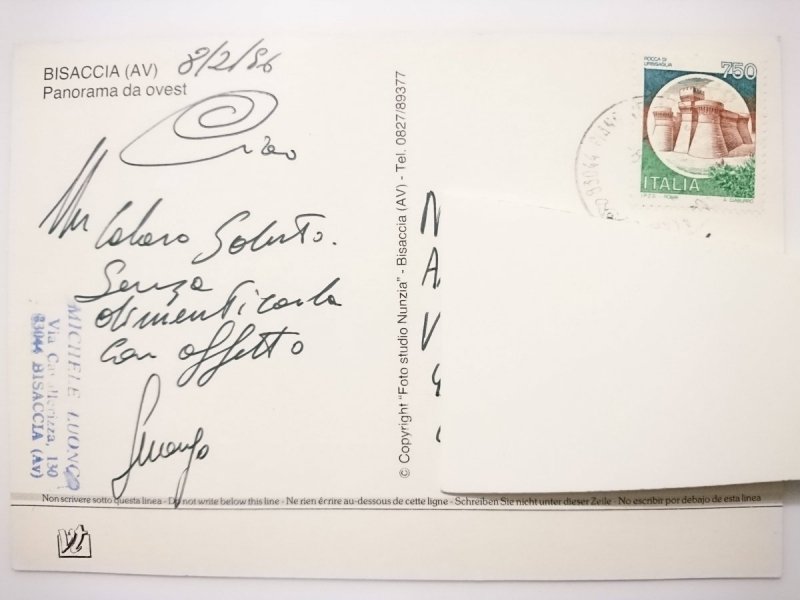 BISACCIA (AV) 8/2/96
Panorama da ovest
Ciao
Un Caloroso Saluto.
Senza
dimenticarla
con affetto
MICHELE LUONGO
130
83044 BISACCIA (AV)
© Copyright "Foto studio Nunzia" - Bisaccia (AV) - Tel. 0827/89377
N
A
V
ROCCA DI
URBISAGLIA
750
ITALIA
I.P.Z.S. - ROMA
83044
Non scrivere sotto questa linea - Do not write below this line - Ne rien écrire au-dessous de cette ligne - Schreiben Sie nicht unter dieser Zeile - No escribir por debajo de esta linea